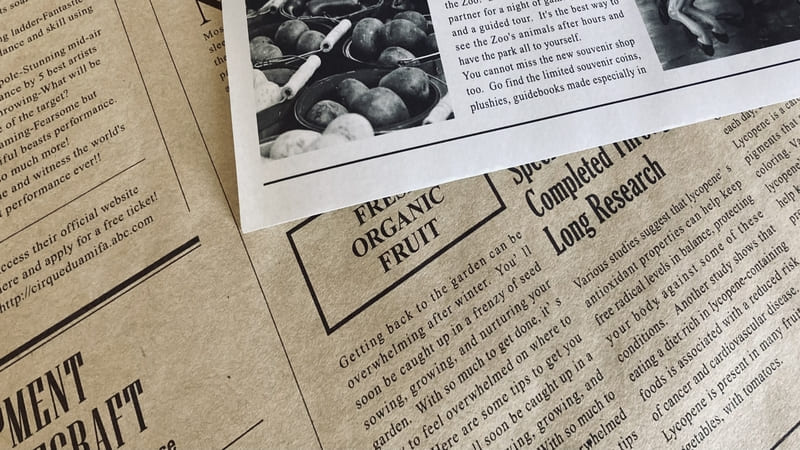 ng ladder-Fantastic
lance and skill using
pole-Stunning mid-air
ance by 5 best artists
rowing-What will be
e of the target?
aming-Fearsome but
iful beasts performance.
so much more!
e and witness the world's
performance ever!!
ccess their official website
here and apply for a free ticket!
http://cirqueduamifa.abc.com
PMENT
the Zoo.
partner for a night of
and a guided tour. It's the best way to
see the Zoo's animals after hours and
have the park all to yourself.
You cannot miss the new souvenir shop
too. Go find the limited souvenir coins,
plushies, guidebooks made especially in
FRESH
ORGANIC
FRUIT
Getting back to the garden can be
overwhelming after winter. You' ll
soon be caught up in a frenzy of seed
sowing, growing, and nurturing your
garden. With so much to get done, it' s
to feel overwhelmed on where to
Here are some tips to get you
ll soon be caught up in a
wing, growing, and
With so much to
whelmed
tips
Completed
Long Research
Various studies suggest that lycopene' s
antioxidant properties can help keep
free radical levels in balance, protecting
your body against some of these
conditions. Another study shows that
eating a diet rich in lycopene-containing
foods is associated with a reduced risk
of cancer and cardiovascular disease.
Lycopene is present in many fruits
getables, with tomatoes.
each day.
Lycopene is a
pigments that
coloring.
lycopene
help